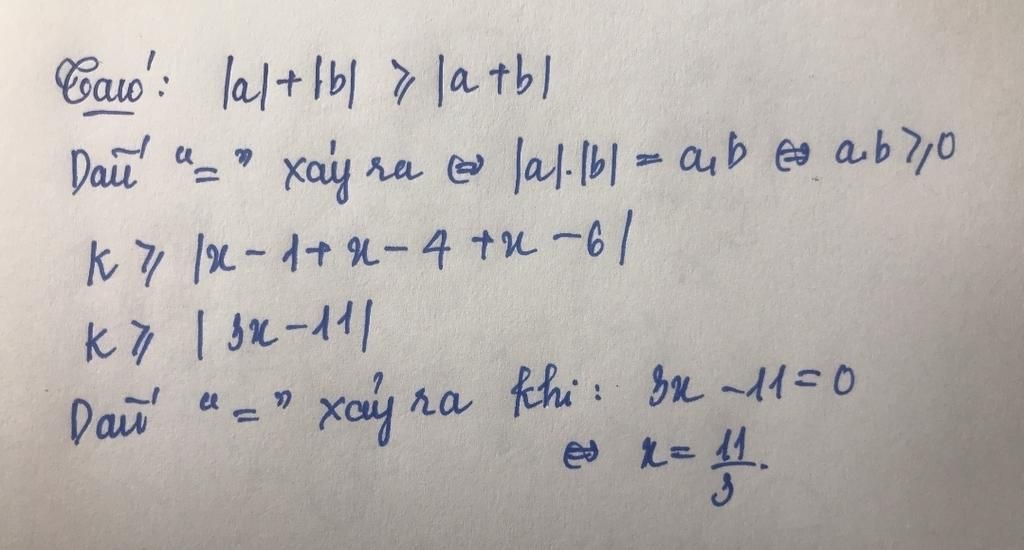 Ta có: |a|+|b| ⩾ |a+b|
Dấu "=" xảy ra ⇔ |a|.|b| = a.b ⇔ a.b ⩾ 0
K ⩾ |x - 1 + x - 4 + x - 6|
K ⩾ | 3x - 11|
Dấu "=" xảy ra khi: 3x - 11 = 0
⇔ x = 11/3.